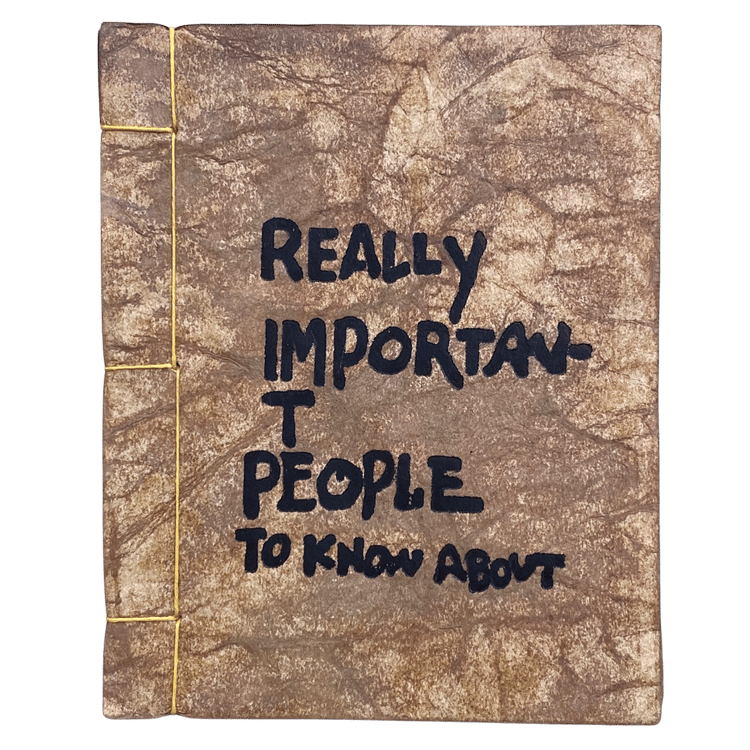 REALLY
IMPORTAN-
T
PEOPLE
TO KNOW ABOUT